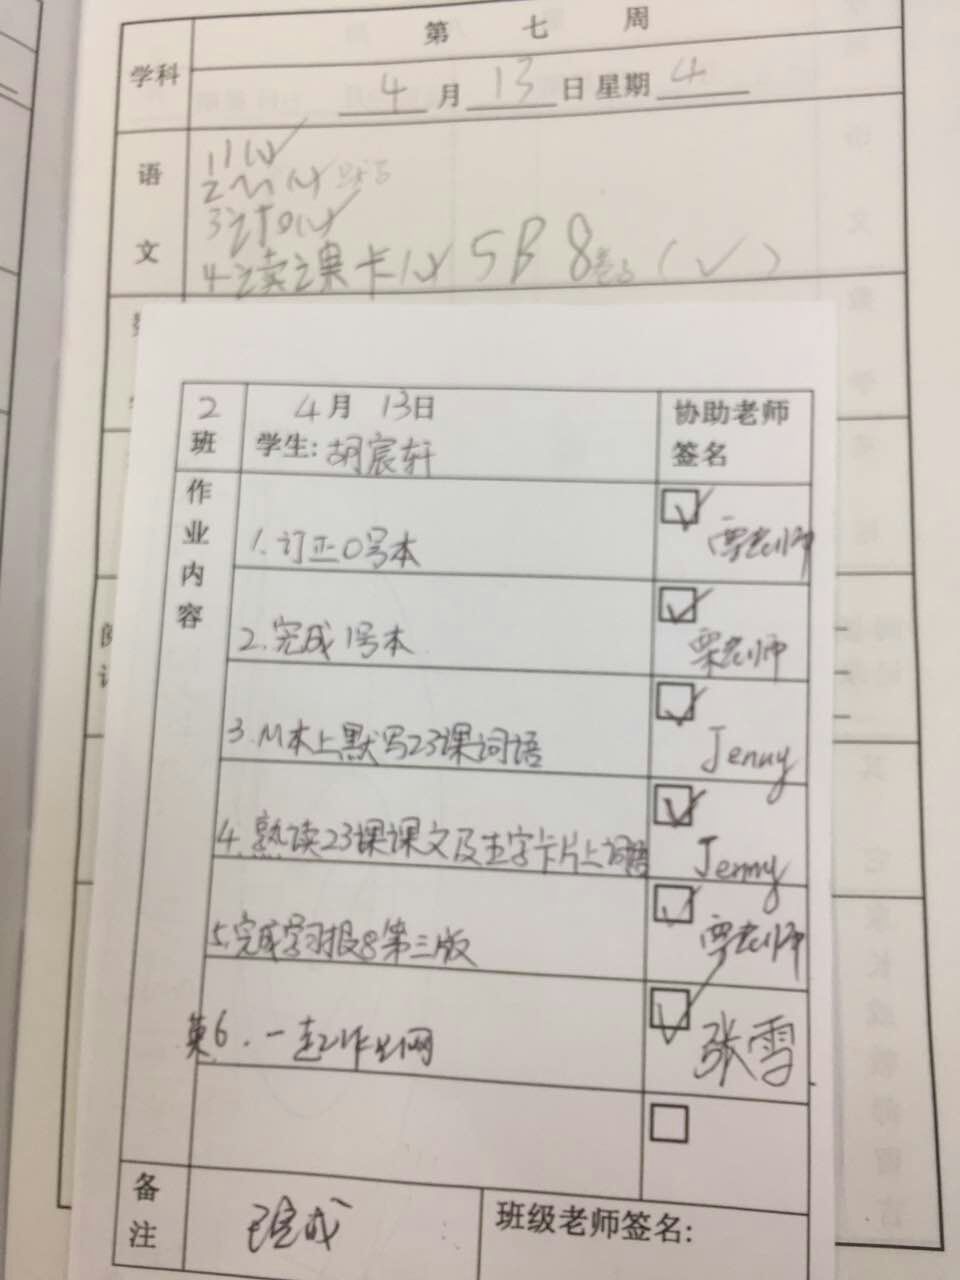 第 七 周
学科
4 月 13 日 星期 4
语文
4 读课卡 5 B 8 (✓)
2 班
4月 13日
学生: 胡宸轩
协助老师签名
作业内容
1. 订正0号本
☑ 覃老师
2. 完成 1号本
☑ 覃老师
3. M本上默写23课词语
☑ Jenny
4. 熟读23课课文及生字卡片上词语
☑ Jenny
5. 完成学习报8第三版
☑ 覃老师
英6. 一起作业网
☑ 张雪
☐
备注
已完成
班级老师签名: